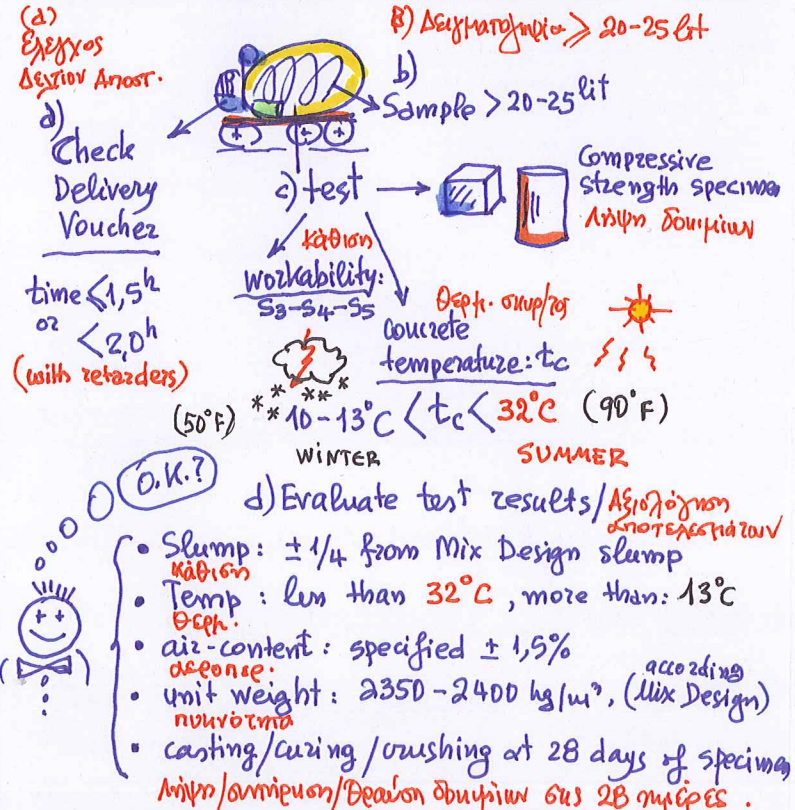 (α)
Έλεγχος
Δελτίου Αποστ.
β) Δειγματοληψία ≥ 20-25 lit
b)
Sample > 20-25 lit
a)
Check
Delivery
Voucher
time ≤ 1,5h
or < 2,0h
(with retarders)
c) test
Compressive
strength specimen
Λήψη δοκιμίων
κάθιση
workability:
S3-S4-S5
Θερμ. σκυρ/τος
concrete
temperature: tc
(50°F) 10-13°C < tc < 32°C (90°F)
WINTER SUMMER
O.K.?
d) Evaluate test results/Αξιολόγηση
αποτελεσμάτων
• Slump: ± 1/4 from Mix Design slump
κάθιση
• Temp: less than 32°C, more than: 13°C
θερμ.
• air-content: specified ± 1,5%
according
• unit weight: 2350-2400 kg/m³, (Mix Design)
πυκνότητα
• casting/curing/crushing at 28 days of specimen
Λήψη/συντήρηση/θραύση δοκιμίων στις 28 ημέρες.